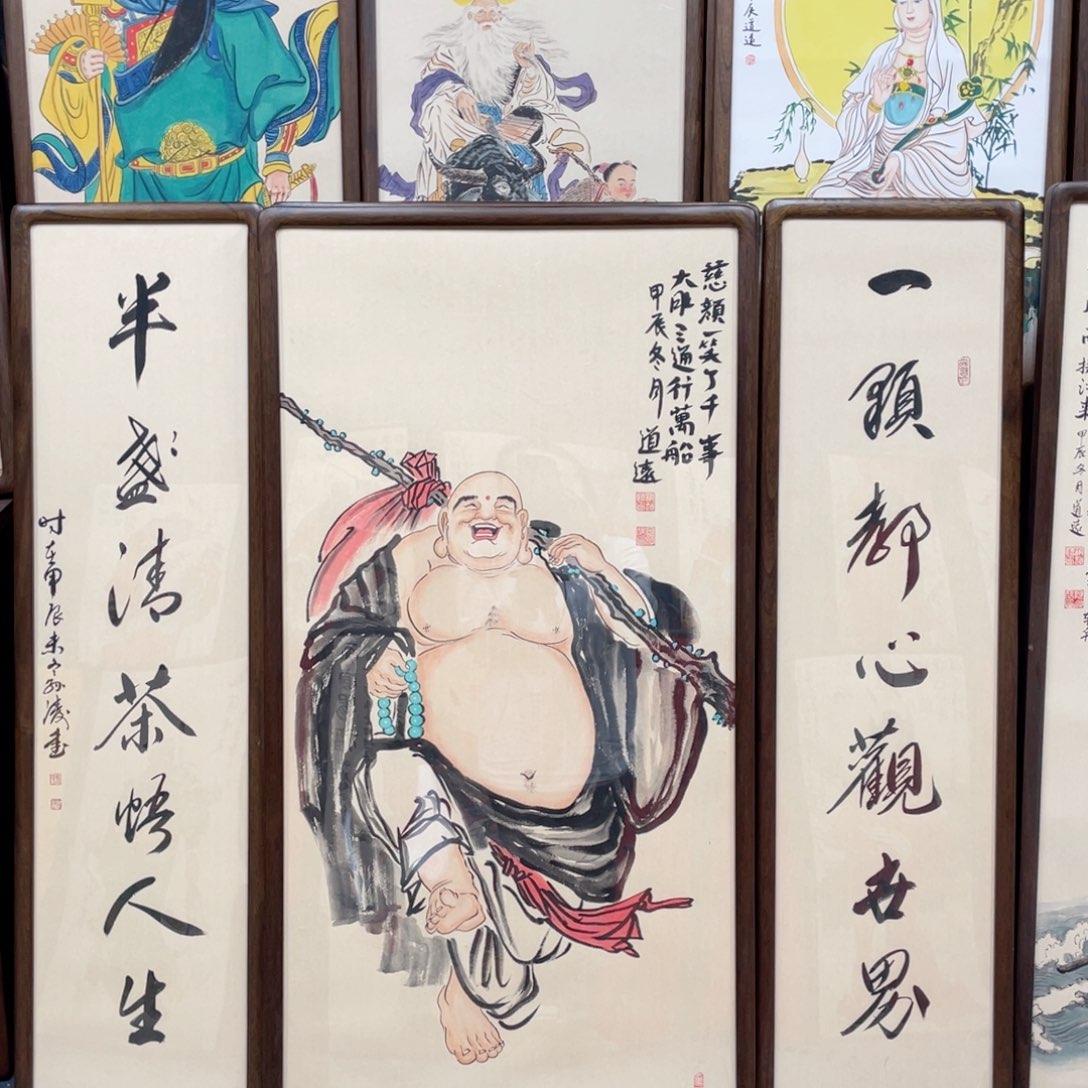 一顆静心觀世界
慈顏一笑了千事
大肚三通行萬船
甲辰冬月 道遠
半盞清茶悟人生
时在甲辰
辰道遠
甲辰冬月道遠